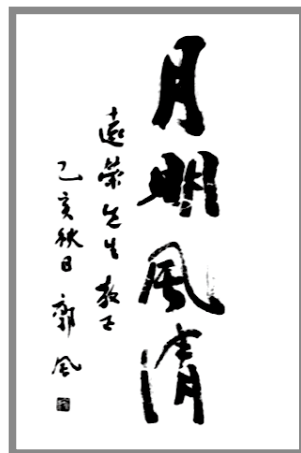 月明風清
遠榮先生教正
乙亥秋日 郭风